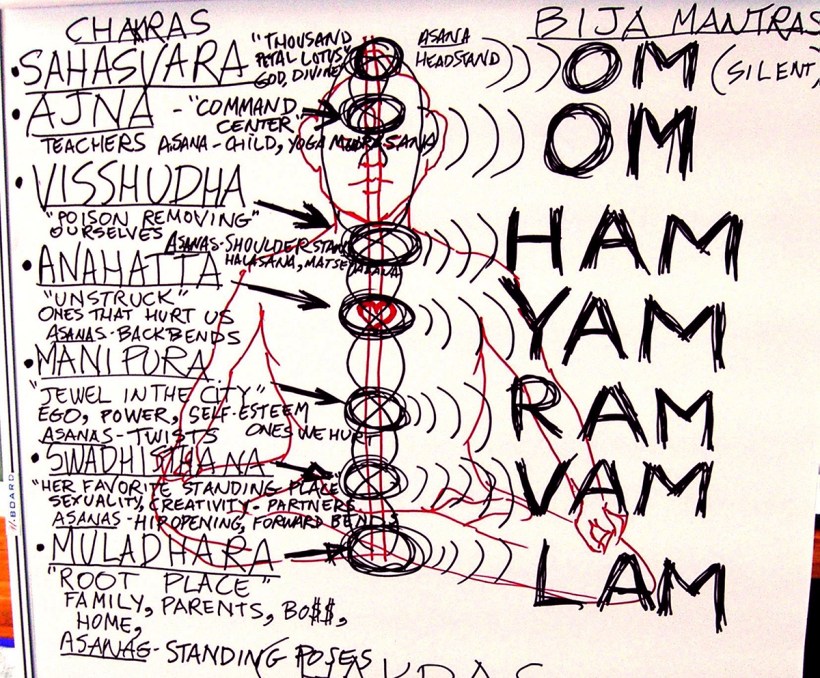 CHAKRAS
BIJA MANTRAS
• SAHASVARA
"THOUSAND
PETAL LOTUS"
GOD, DIVINE
ASANA
HEADSTAND
OM (SILENT)
• AJNA - "COMMAND
CENTER"
TEACHERS ASANA - CHILD, YOGA MUDRASANA
OM
• VISSHUDHA
"POISON REMOVING"
OURSELVES
ASANAS - SHOULDERSTAND
HALASANA,
HAM
• ANAHATTA
"UNSTRUCK"
ONES THAT HURT US
ASANAS - BACKBENDS
YAM
• MANIPURA
"JEWEL IN THE CITY"
EGO, POWER, SELF-ESTEEM
ASANAS - TWISTS ONES WE HURT
RAM
• SWADHISTHANA
"HER FAVORITE STANDING PLACE"
SEXUALITY, CREATIVITY - PARTNERS
ASANAS - HIPOPENING, FORWARD BENDS
VAM
• MULADHARA
"ROOT PLACE"
FAMILY, PARENTS, BO$$,
HOME,
ASANAS - STANDING POSES
LAM
BOARD